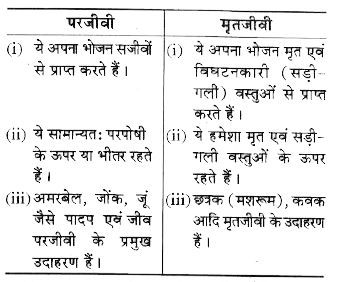 परजीवी
मृतजीवी
(i) ये अपना भोजन सजीवों
से प्राप्त करते हैं ।
(i) ये अपना भोजन मृत एवं
विघटनकारी (सड़ी-
गली) वस्तुओं से प्राप्त
करते हैं ।
(ii) ये सामान्यतः परपोषी
के ऊपर या भीतर रहते
हैं ।
(ii) ये हमेशा मृत एवं सड़ी-
गली वस्तुओं के ऊपर
रहते हैं ।
(iii) अमरबेल, जोंक, जूं
जैसे पादप एवं जीव
परजीवी के प्रमुख
उदाहरण हैं ।
(iii) छत्रक (मशरूम), कवक
आदि मृतजीवी के उदाहरण
हैं ।